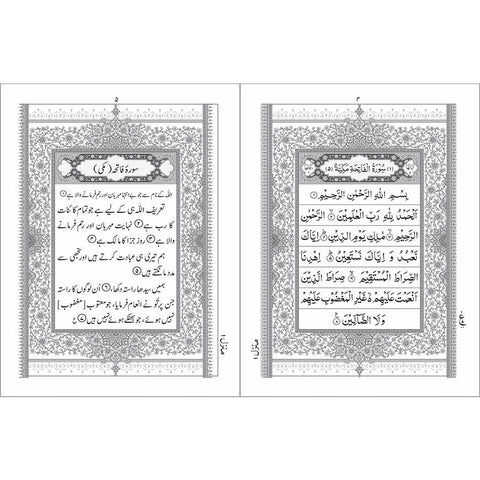 سُوْرَةُ الْفَاتِحَةِ مَكِّيَّةٌ
بِسْمِ اللّٰهِ الرَّحْمٰنِ الرَّحِيْمِ ①
اَلْحَمْدُ لِلّٰهِ رَبِّ الْعٰلَمِيْنَ ② الرَّحْمٰنِ
الرَّحِيْمِ ③ مٰلِكِ يَوْمِ الدِّيْنِ ④ اِيَّاكَ
نَعْبُدُ وَ اِيَّاكَ نَسْتَعِيْنُ ⑤ اِهْدِنَا
الصِّرَاطَ الْمُسْتَقِيْمَ ⑥ صِرَاطَ الَّذِيْنَ
اَنْعَمْتَ عَلَيْهِمْ غَيْرِ الْمَغْضُوْبِ عَلَيْهِمْ
وَ لَا الضَّآلِّيْنَ ⑦
منزل ۱
۵
سورۂ فاتحہ (مکی)
اللہ کے نام سے جو بے انتہا مہربان اور رحم فرمانے والا ہے ①
تعریف اللہ ہی کے لیے ہے جو تمام کائنات
کا رب ہے ② نہایت مہربان اور رحم فرمانے
والا ہے ③ روزِ جزا کا مالک ہے ④
ہم تیری ہی عبادت کرتے ہیں اور تجھی سے
مدد مانگتے ہیں ⑤
ہمیں سیدھا راستہ دکھا، ⑥ اُن لوگوں کا راستہ
جن پر تُو نے انعام فرمایا، جو معتوب [مغضوب]
نہیں ہوئے، جو بھٹکے ہوئے نہیں ہیں ⑦
منزل ۱